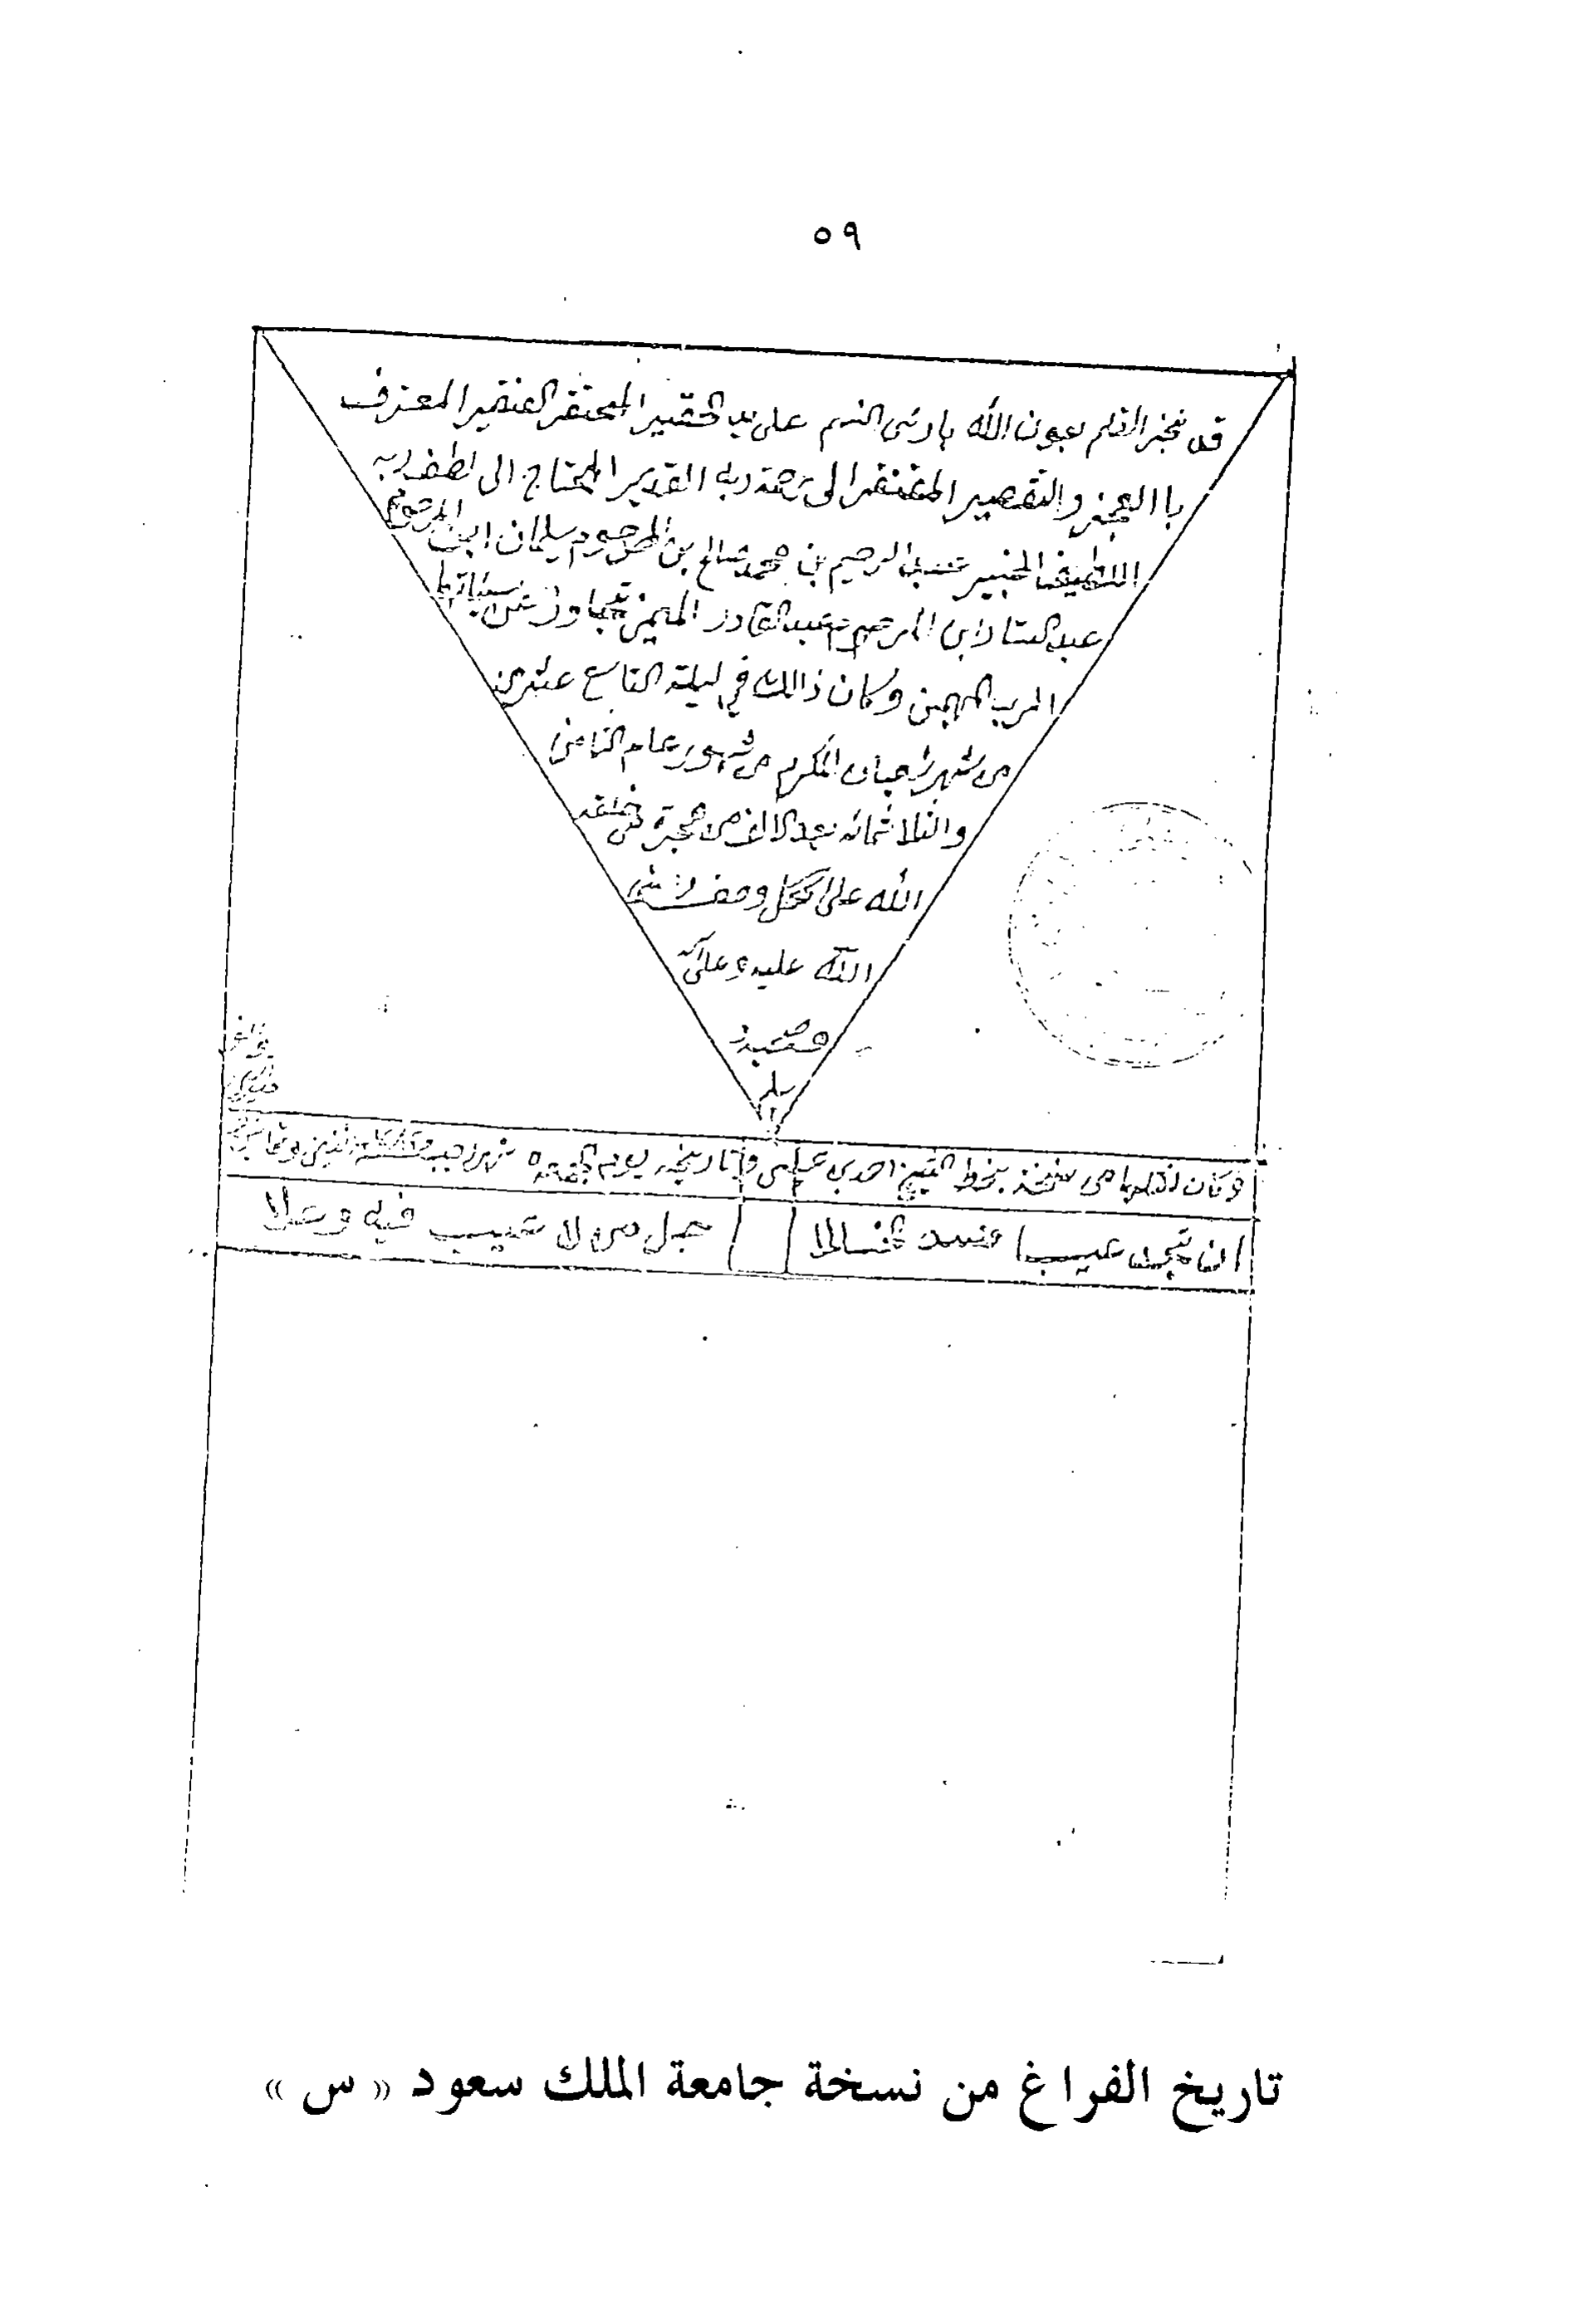 ٥٩
قد نجز القلم بعون الله بارئ النسم على يد الحقير المحتقر الفقير المعترف
باالعجز والتقصير المفتقر الى رحمة ربه القدير المحتاج الى لطف ربه
اللطيف الخبير عبد الرحيم بن محمد صالح بن المرحوم سليمان ابن المرحوم
عبد الستار ابن المرحوم عبد القادر تجاوز عن سيئاتهم
الرب المهيمن وكان ذالك في ليلة التاسع عشرين
من شهر المكرم من شهور عام الثامن
والثلاثمائه بعد الالف من هجرة من خلقه
الله على اكمل وصف
الله عليه وعلى آله
وصحبه
وسلم
وكان نقلها من نسخة بخط الشيخ احمد بن وتاريخه يوم الجمعه شهر رجب
ان تجد عيبا فسد الخللا جل من لا عيب فيه وعلا
تاريخ الفراغ من نسخة جامعة الملك سعود « س »